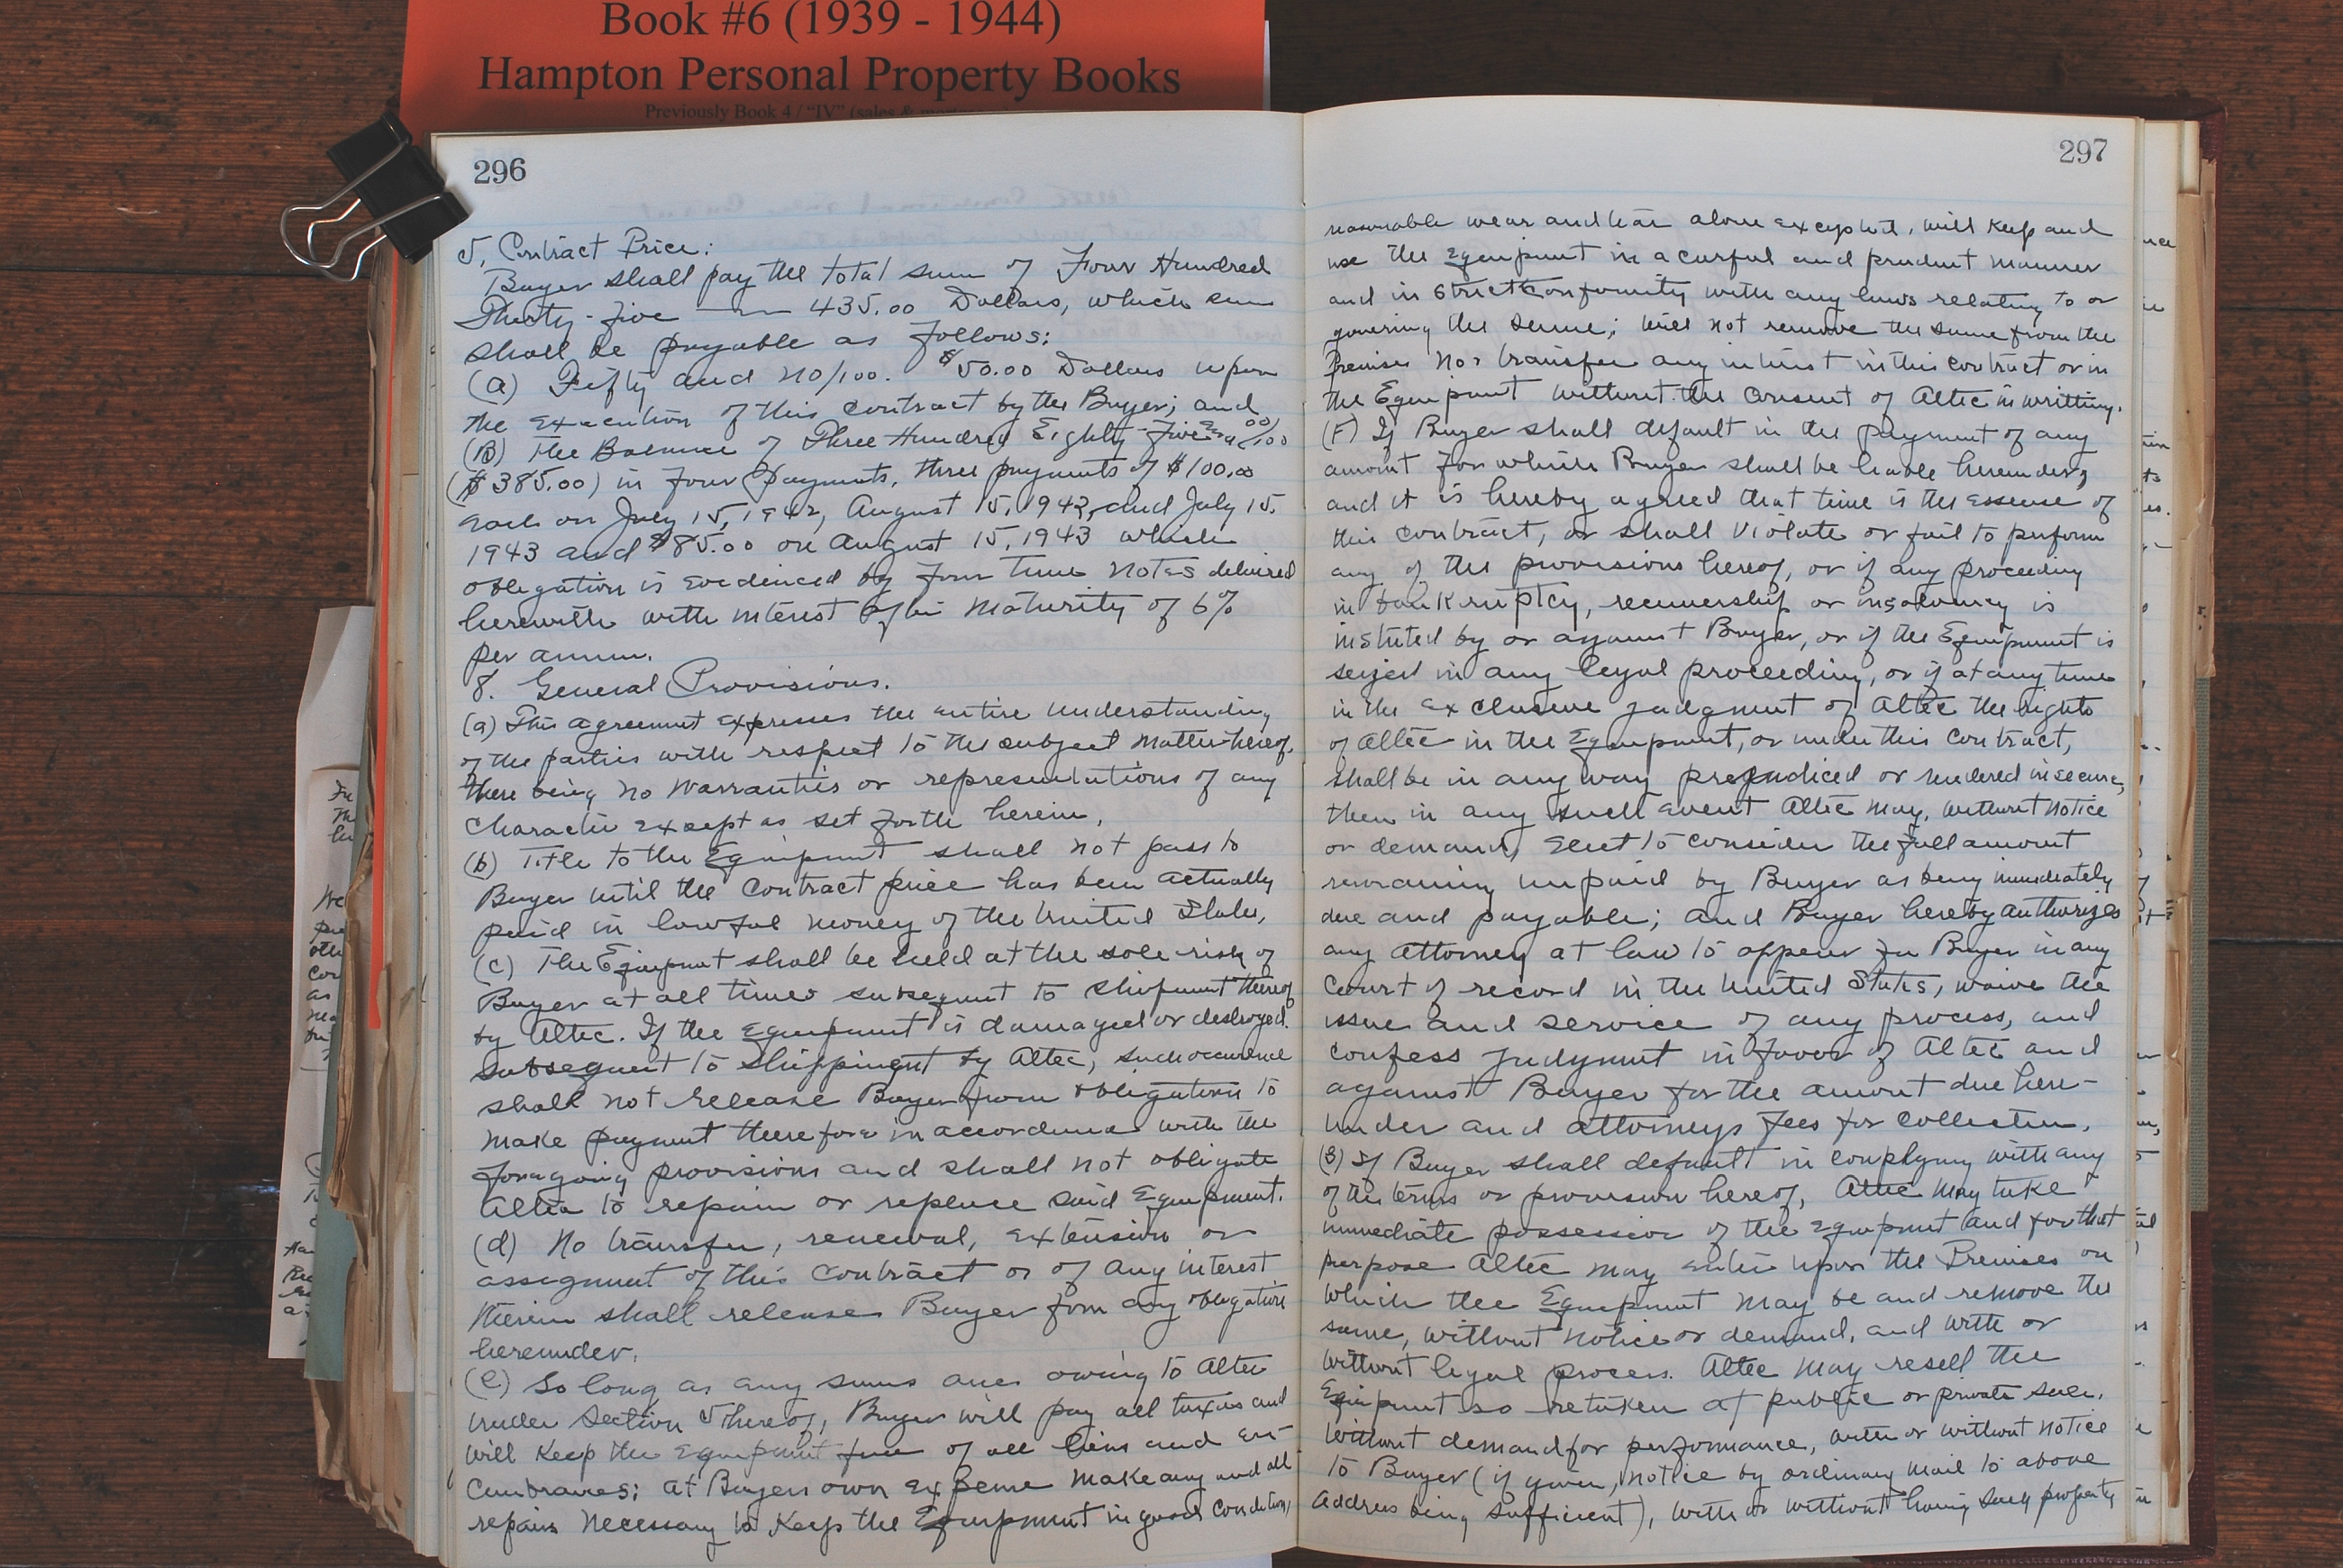 Book #6 (1939 - 1944)
Hampton Personal Property Books
Previously Book 4 / "IV" (sales &
296
5, Contract Price:
Buyer shall pay the total sum of Four Hundred
Thirty-five 435.00 Dollars, which sum
shall be payable as follows:
(a) Fifty and no/100. $50.00 Dollars upon
the execution of this contract by the Buyer; and
(B) The Balance of Three Hundred Eighty-Five 00/100
($385.00) in four payments, three payments of $100.00
each on July 15, 1942, August 15, 1942, and July 15.
1943 and $85.00 on August 15, 1943 which
obligation is evidenced by four time notes delivered
herewith with interest after maturity of 6%
per annum.
8. General Provisions.
(a) This agreement expresses the entire understanding
of the parties with respect to the subject matter hereof,
there being no warranties or representations of any
character except as set forth herein,
(b) Title to the Equipment shall not pass to
Buyer until the contract price has been actually
paid in lawful money of the United States,
(c) The Equipment shall be held at the sole risk of
Buyer at all times subsequent to shipment thereof
by Altec. If the equipment is damaged or destroyed
subsequent to shippingnt by Altec, such occurence
shall not release Buyer from obligation to
make payment therefore in accordance with the
foregoing provisions and shall not obligate
Altec to repair or replace said Equipment.
(d) No transfer, renewal, extension or
assignment of this contract or of any interest
therein shall release Buyer from any obligation
hereunder.
(e) So long as any sums are owing to Altec
under Section 5 hereof, Buyer will pay all taxes and
will keep the equipment free of all liens and en-
cumbrances; at Buyers own expense make any and all
repairs necessary to keep the Equipment in good condition,
297
reasonable wear and tear alone excepted, will keep and
use the Equipment in a careful and prudent manner
and in strict conformity with any laws relating to or
governing the same; will not remove the same from the
Premises nor transfer any interest in this contract or in
the Equipment without the consent of Altec in writting.
(F) If Buyer shall default in the payment of any
amount for which Buyer shall be liable hereunder,
and it is hereby agreed that time is the essense of
this contract, or shall violate or fail to perform
any of the provisions hereof, or if any proceeding
in bankruptcy, receivership or insolvency is
instituted by or against Buyer, or if the Equipment is
seized in any legal proceeding, or if at any time
in the exclusive judgment of Altec the rights
of Altec in the Equipment, or under this contract,
shall be in any way prejudiced or rendered insecure,
then in any such event Altec may, without notice
or demand, elect to consider the full amount
remaining unpaid by Buyer as being immediately
due and payable; and Buyer hereby authorizes
any attorney at law to appear for Buyer in any
Court of record in the United States, waive the
issue and service of any process, and
confess judgment in favor of Altec and
against Buyer for the amount due here-
under and attorneys fees for collection.
(G) If Buyer shall default in complying with any
of the terms or provision hereof, Altec may take
immediate possession of the equipment and for that
purpose Altec may enter upon the Premises on
which the Equipment may be and remove the
same, without notice or demand, and with or
without legal process. Altec may resell the
Equipment so retaken at public or private sale.
without demand for performance, with or without notice
to Buyer (if given, notice by ordinary mail to above
address being sufficient), with or without having such property